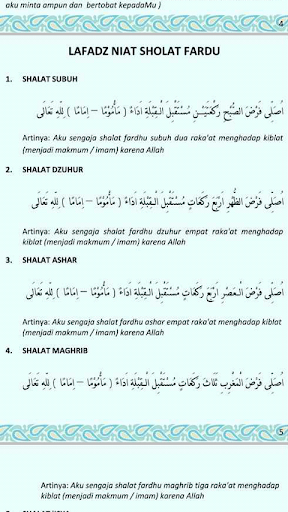 aku minta ampun dan bertobat kepadaMu )
4
LAFADZ NIAT SHOLAT FARDU
1. SHALAT SUBUH
اُصَلِّى فَرْضَ الصُّبْحِ رَكْعَتَيْـنِ مُسْتَقْبِلَ الْـقِبْلَةِ اَدَاءً ( مَأْمُوْمًا – اِمَامًا ) لِلّٰهِ تَعَالَى
Artinya: Aku sengaja shalat fardhu subuh dua raka'at menghadap kiblat
(menjadi makmum / imam) karena Allah
2. SHALAT DZUHUR
اُصَلِّى فَرْضَ الظُّهْرِ اَرْبَعَ رَكَعَاتٍ مُسْتَقْبِلَ الْـقِبْلَةِ اَدَاءً ( مَأْمُوْمًا – اِمَامًا ) لِلّٰهِ تَعَالَى
Artinya: Aku sengaja shalat fardhu dzuhur empat raka'at menghadap
kiblat (menjadi makmum / imam) karena Allah
3. SHALAT ASHAR
اُصَلِّى فَرْضَ الْـعَصْرِ اَرْبَعَ رَكَعَاتٍ مُسْتَقْبِلَ الْـقِبْلَةِ اَدَاءً ( مَأْمُوْمًا – اِمَامًا ) لِلّٰهِ تَعَالَى
Artinya: Aku sengaja shalat fardhu ashar empat raka'at menghadap kiblat
(menjadi makmum / imam) karena Allah
4. SHALAT MAGHRIB
اُصَلِّى فَرْضَ الْمَغْرِبِ ثَلَاثَ رَكَعَاتٍ مُسْتَقْبِلَ الْـقِبْلَةِ اَدَاءً ( مَأْمُوْمًا – اِمَامًا ) لِلّٰهِ تَعَالَى
5
Artinya: Aku sengaja shalat fardhu maghrib tiga raka'at menghadap
kiblat (menjadi makmum / imam) karena Allah